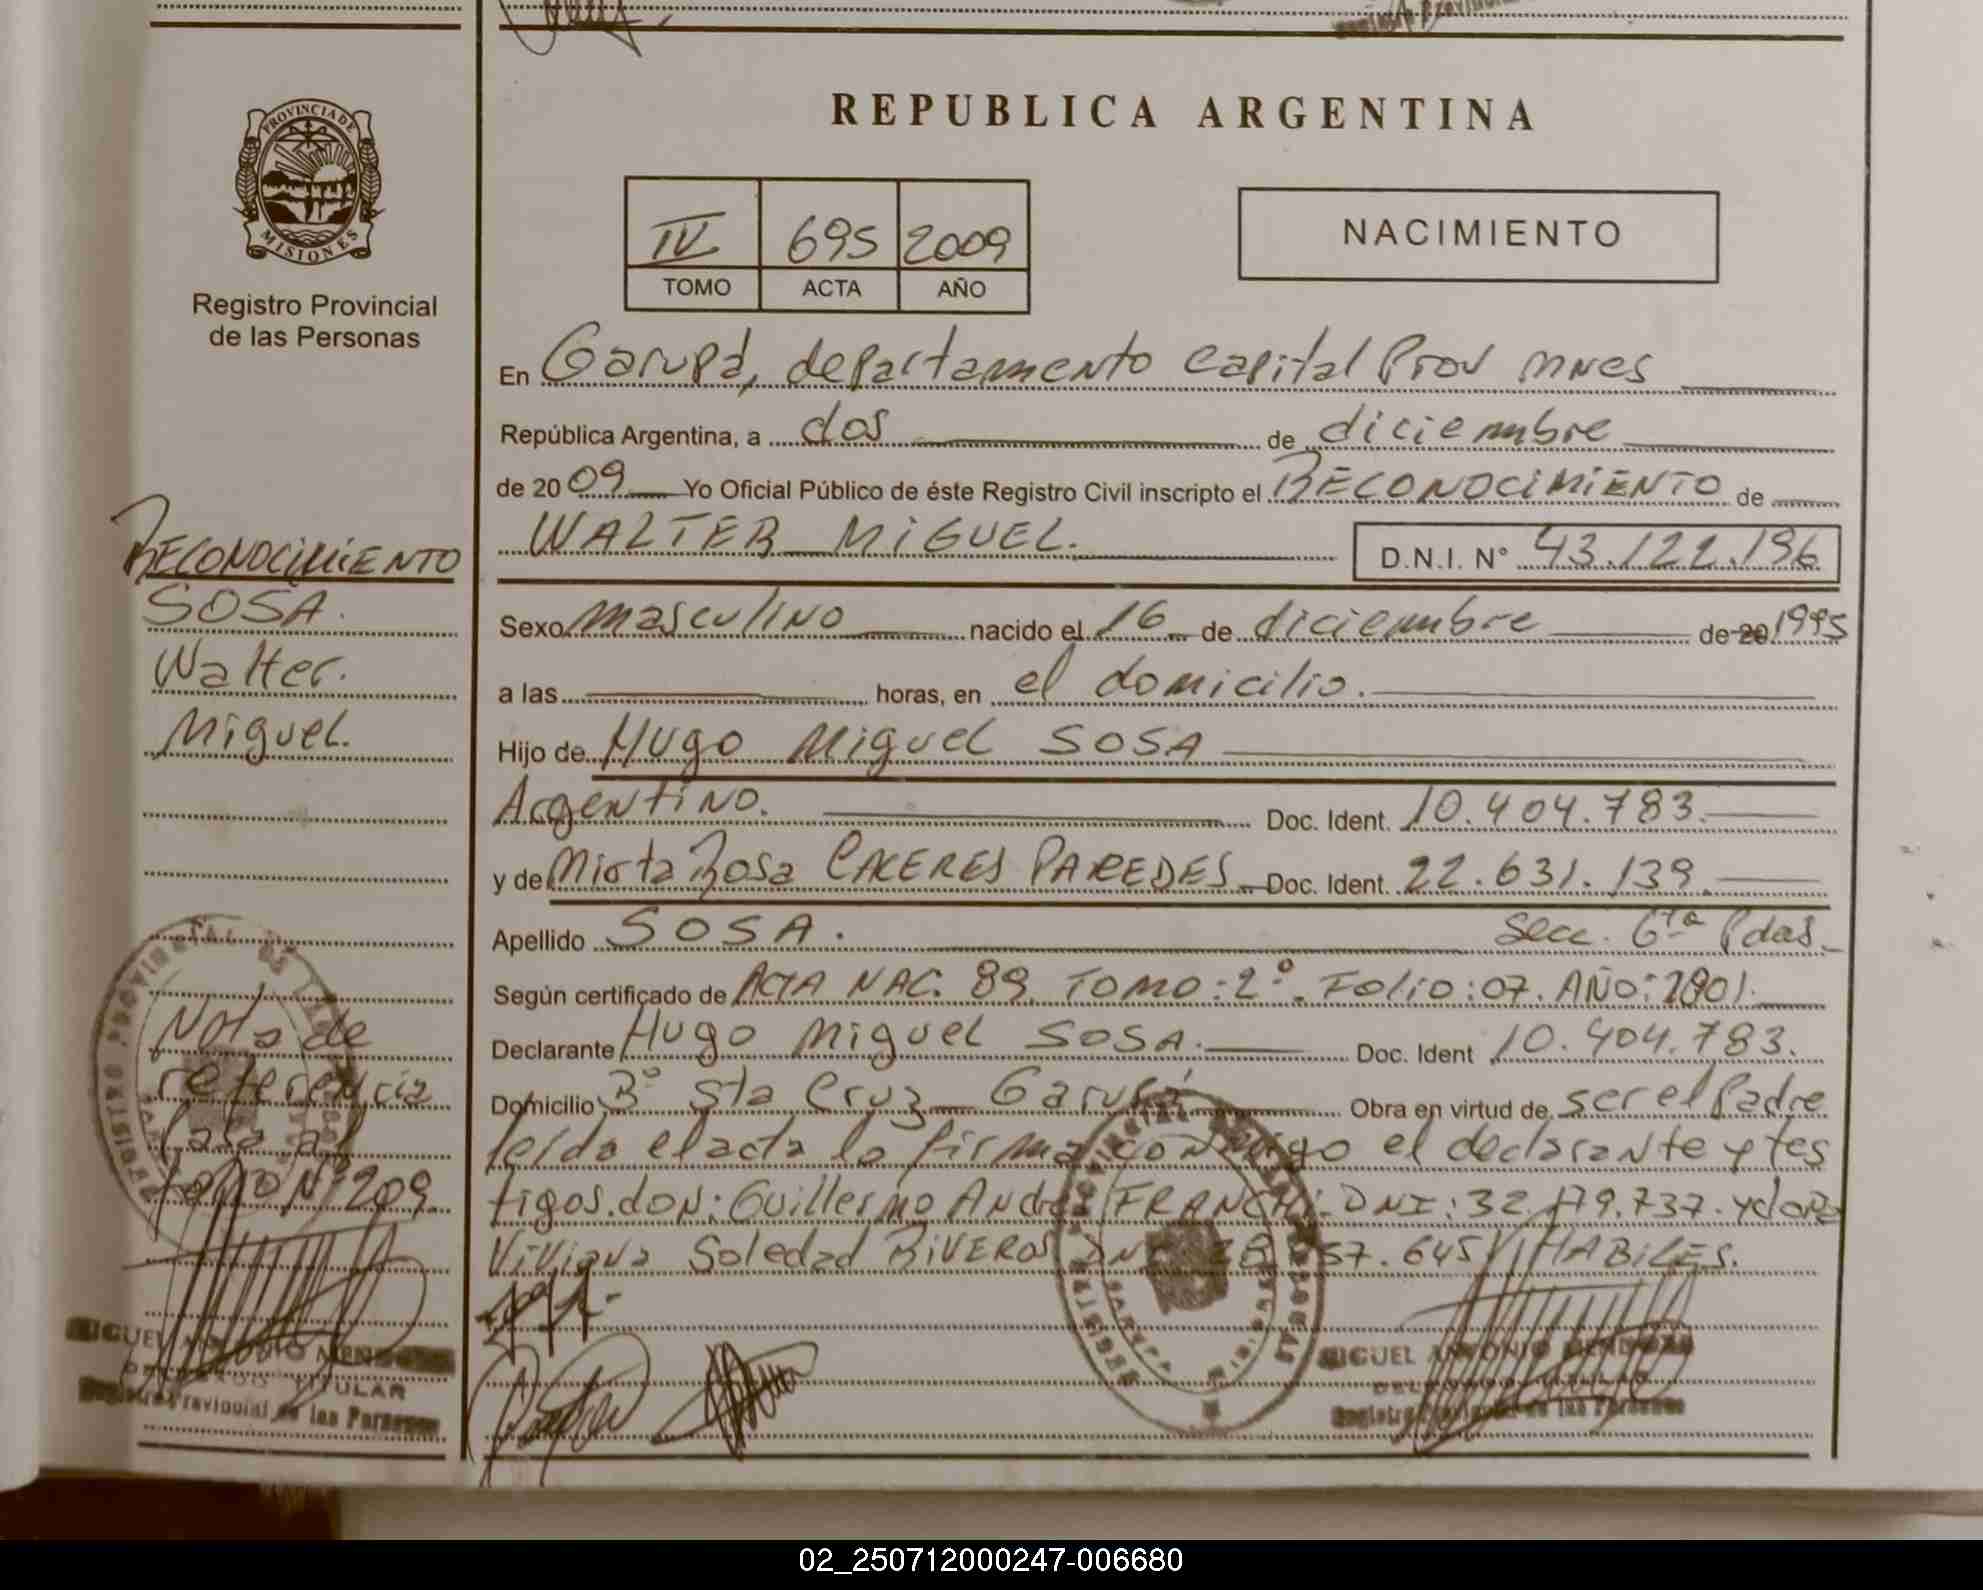 REPUBLICA ARGENTINA
PROVINCIA DE
MISIONES
Registro Provincial
de las Personas
IV 695 2009
TOMO ACTA AÑO
NACIMIENTO
En Garupá, departamento Capital Prov mnes
República Argentina, a dos de diciembre
de 2009 Yo Oficial Público de éste Registro Civil inscripto el RECONOCIMIENTO de
WALTER MIGUEL. D.N.I. N° 43.122.196
Sexo masculino nacido el 16 de diciembre de 20 1995
a las horas, en el domicilio.
Hijo de Hugo Miguel SOSA
Argentino. Doc. Ident. 10.404.783.
y de Mirta Rosa CACERES PAREDES Doc. Ident. 22.631.139.
Apellido SOSA. Secc. 6ta Pdas.
Según certificado de ACTA NAC: 89. TOMO: 2°. Folio: 07. AÑO: 2001.
Declarante Hugo Miguel SOSA. Doc. Ident 10.404.783.
Domicilio B° Sta Cruz Garupá Obra en virtud de ser el Padre
leída el acta la firma conmigo el declarante y tes
tigos. don: Guillermo Andrés FRANCHI. DNI: 32.179.737. y doña
Viviana Soledad RIVEROS DNI 28 57.645 HABILES.
MIGUEL ANTONIO MENDOZA
DELEGADO TITULAR
Registro Provincial de las Personas
RECONOCIMIENTO
SOSA.
Walter.
Miguel.
Nota de
referencia
Pasa al
folio N° 209.
MIGUEL ANTONIO MENDOZA
DELEGADO TITULAR
Registro Provincial de las Personas
02_250712000247-006680